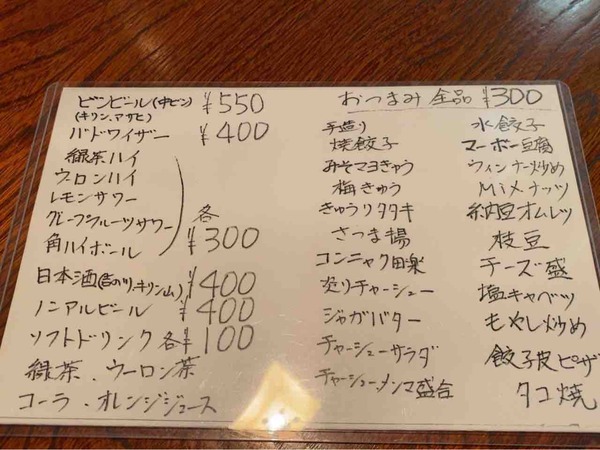 ビンビール(中ビン) ¥550
(キリン、アサヒ)
バドワイザー ¥400
緑茶ハイ
ウーロンハイ
レモンサワー
グレープフルーツサワー
角ハイボール
各 ¥300
日本酒(吉のリ、キリン山) ¥400
ノンアルビール ¥400
ソフトドリンク 各¥100
緑茶、ウーロン茶
コーラ・オレンジジュース
おつまみ 全品 ¥300
手造り
焼餃子
みそマヨきゅう
梅きゅう
きゅうりタタキ
さつま揚
コンニャク田楽
炙りチャーシュー
ジャガバター
チャーシューサラダ
チャーシューメンマ盛合
水餃子
マーボー豆腐
ウィンナー炒め
Mixナッツ
納豆オムレツ
枝豆
チーズ盛
塩キャベツ
もやし炒め
餃子皮ピザ
タコ焼